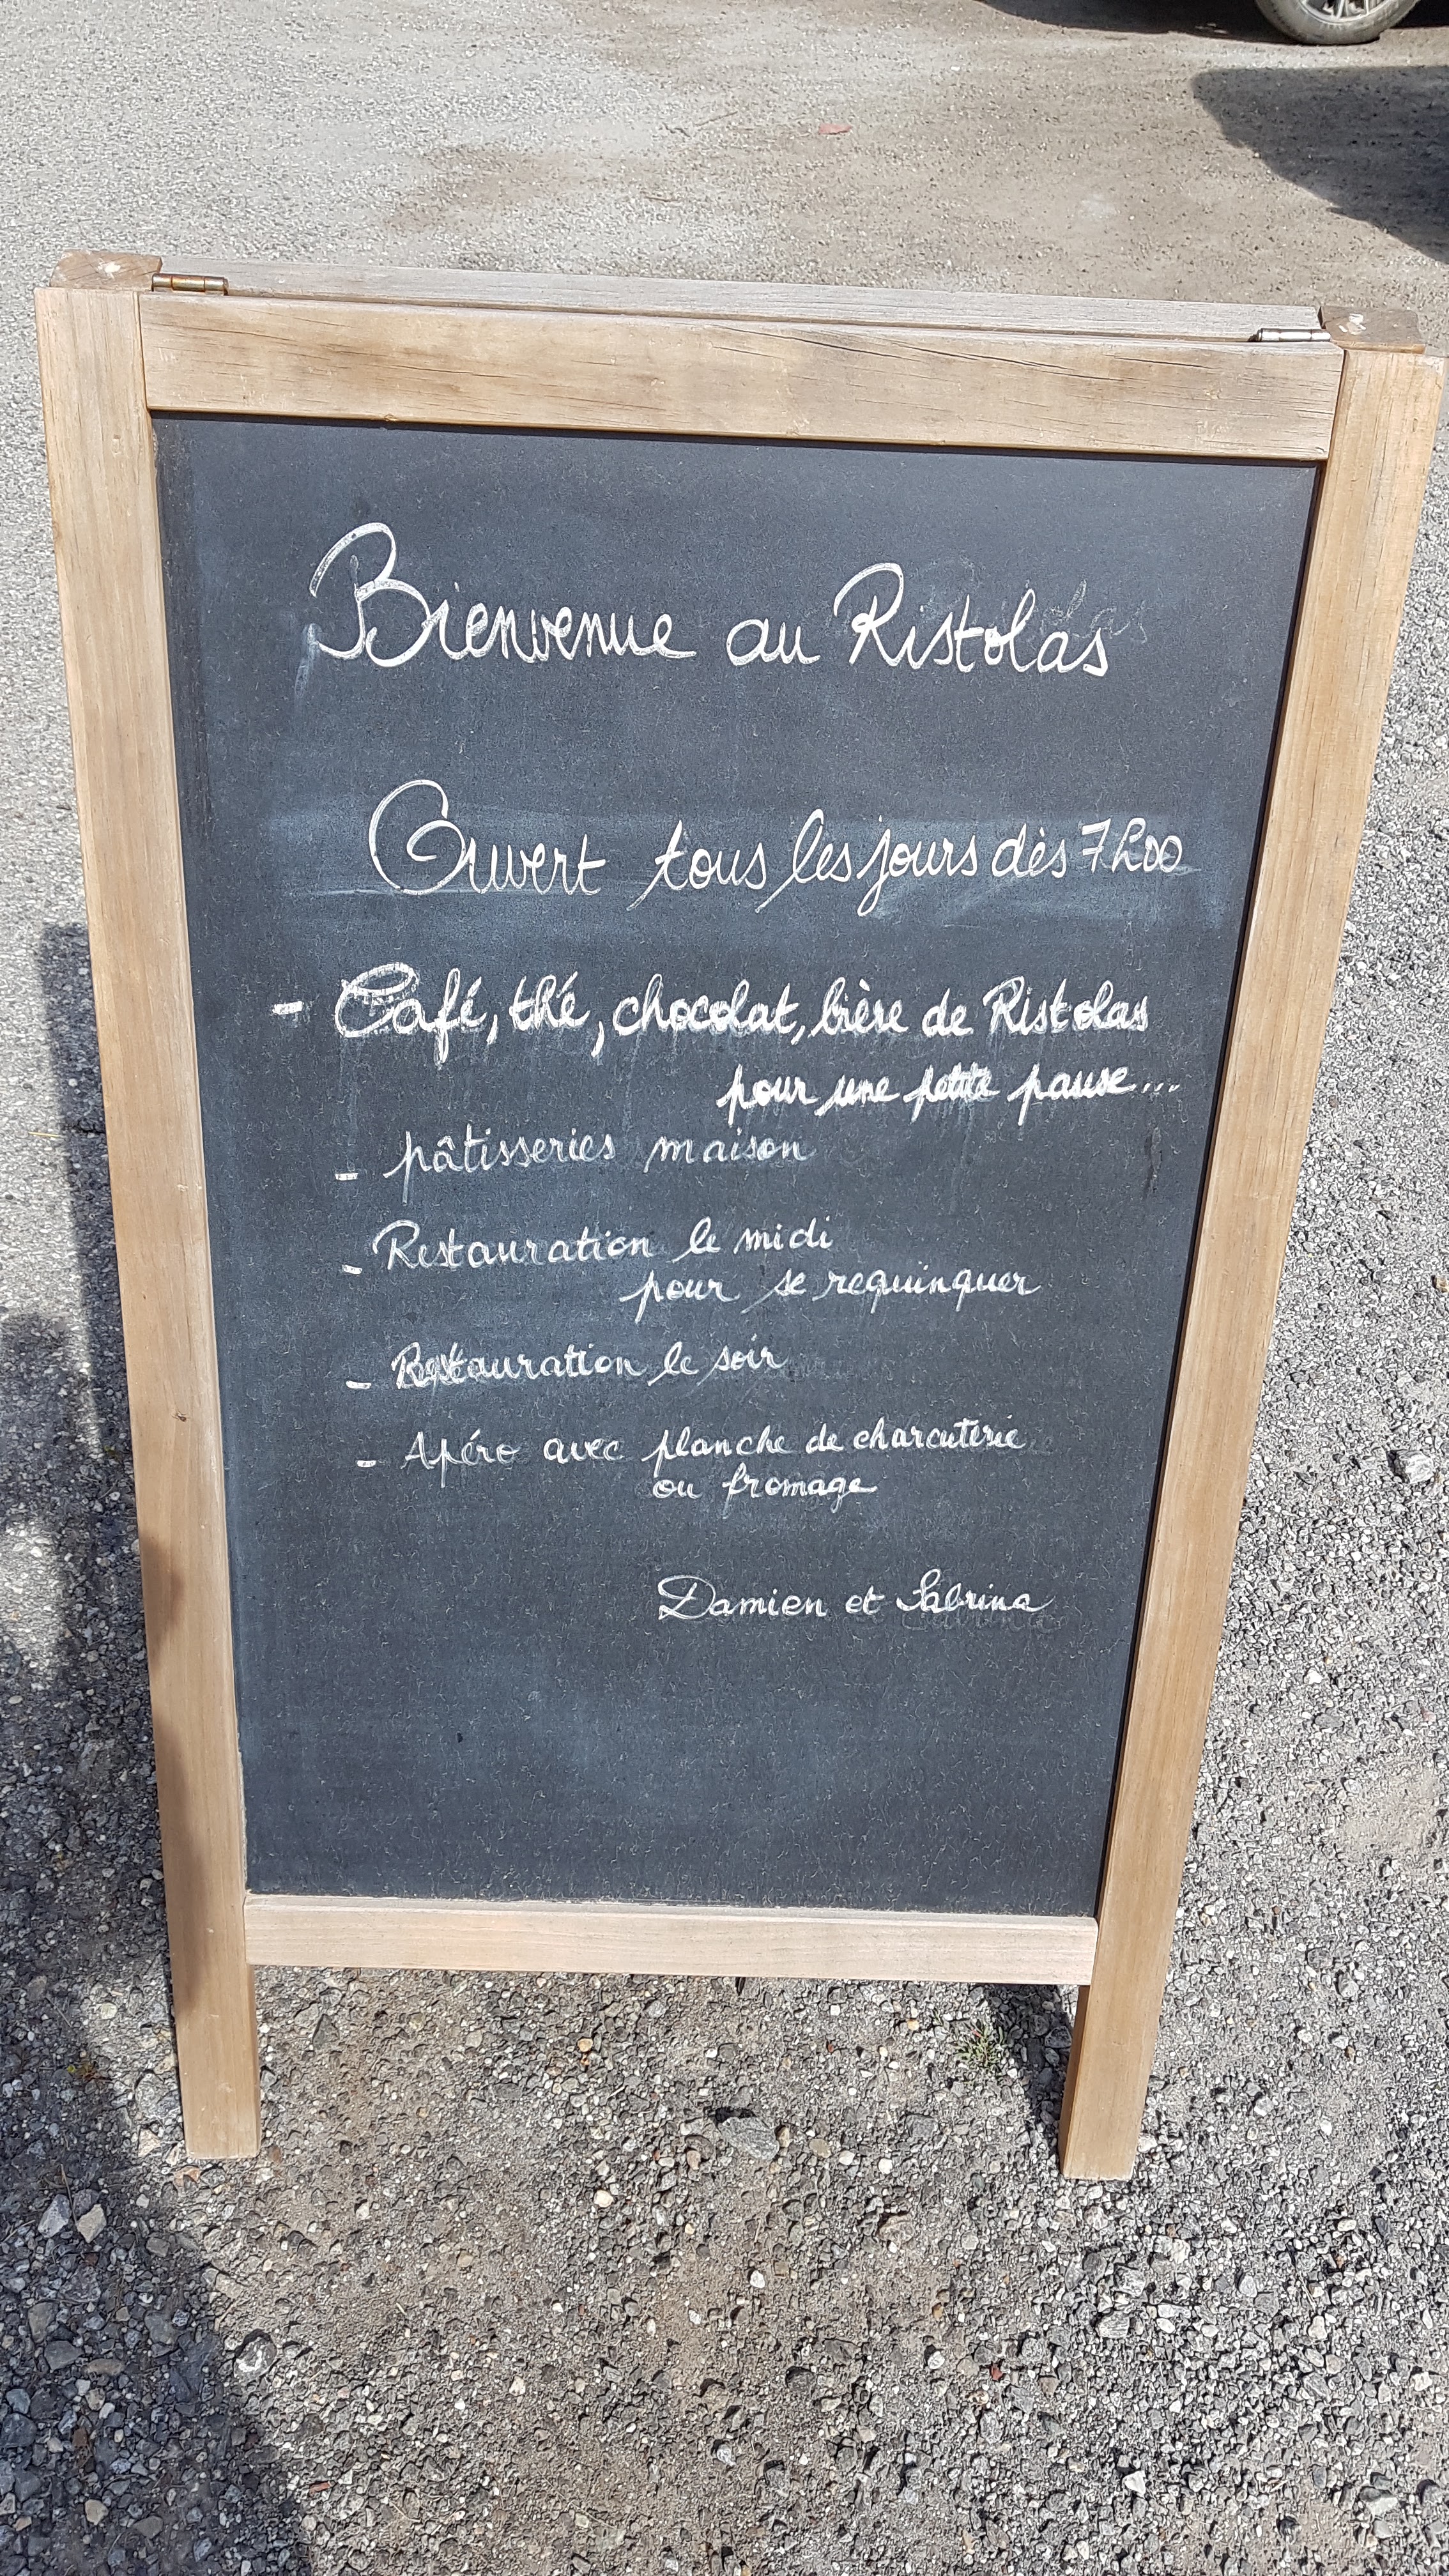 Bienvenue au Ristolas
Ouvert tous les jours dès 7h00
- Café, thé, chocolat, bière de Ristolas
pour une petite pause...
- pâtisseries maison
- Restauration le midi
pour se requinquer
- Restauration le soir
- Apéro avec planche de charcuterie
ou fromage
Damien et Sabrina